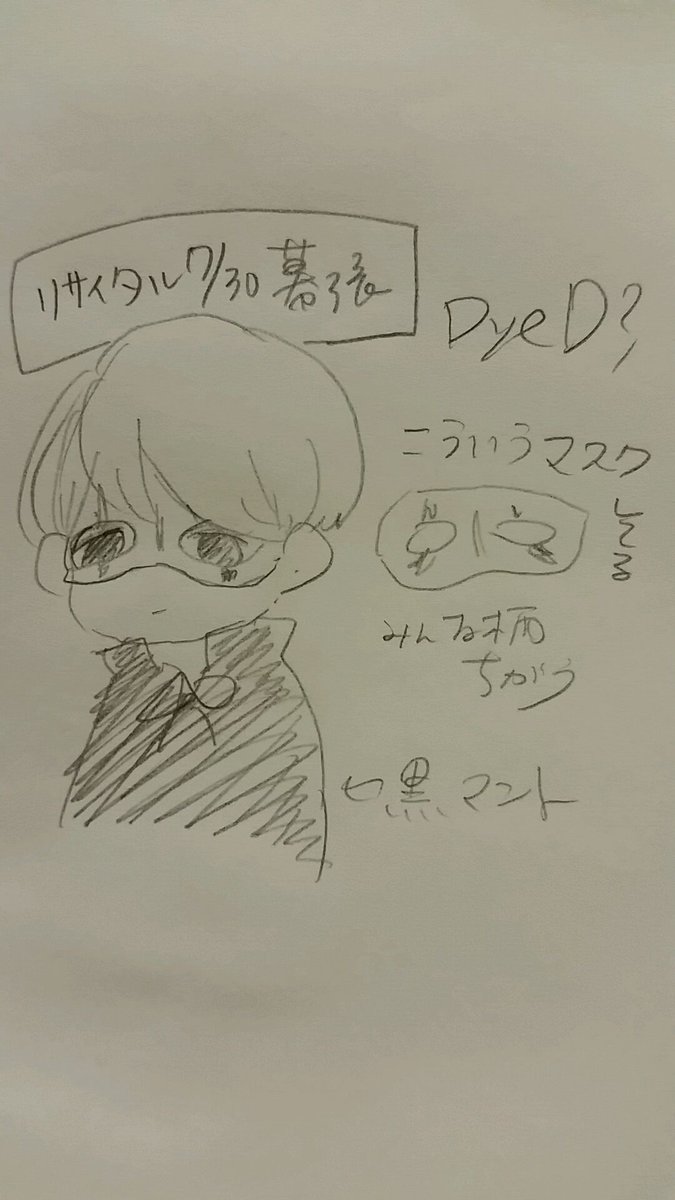 リサイタル7/30 幕張
DyeD?
こういうマスク
してる
みんな柄
ちがう
黒マント